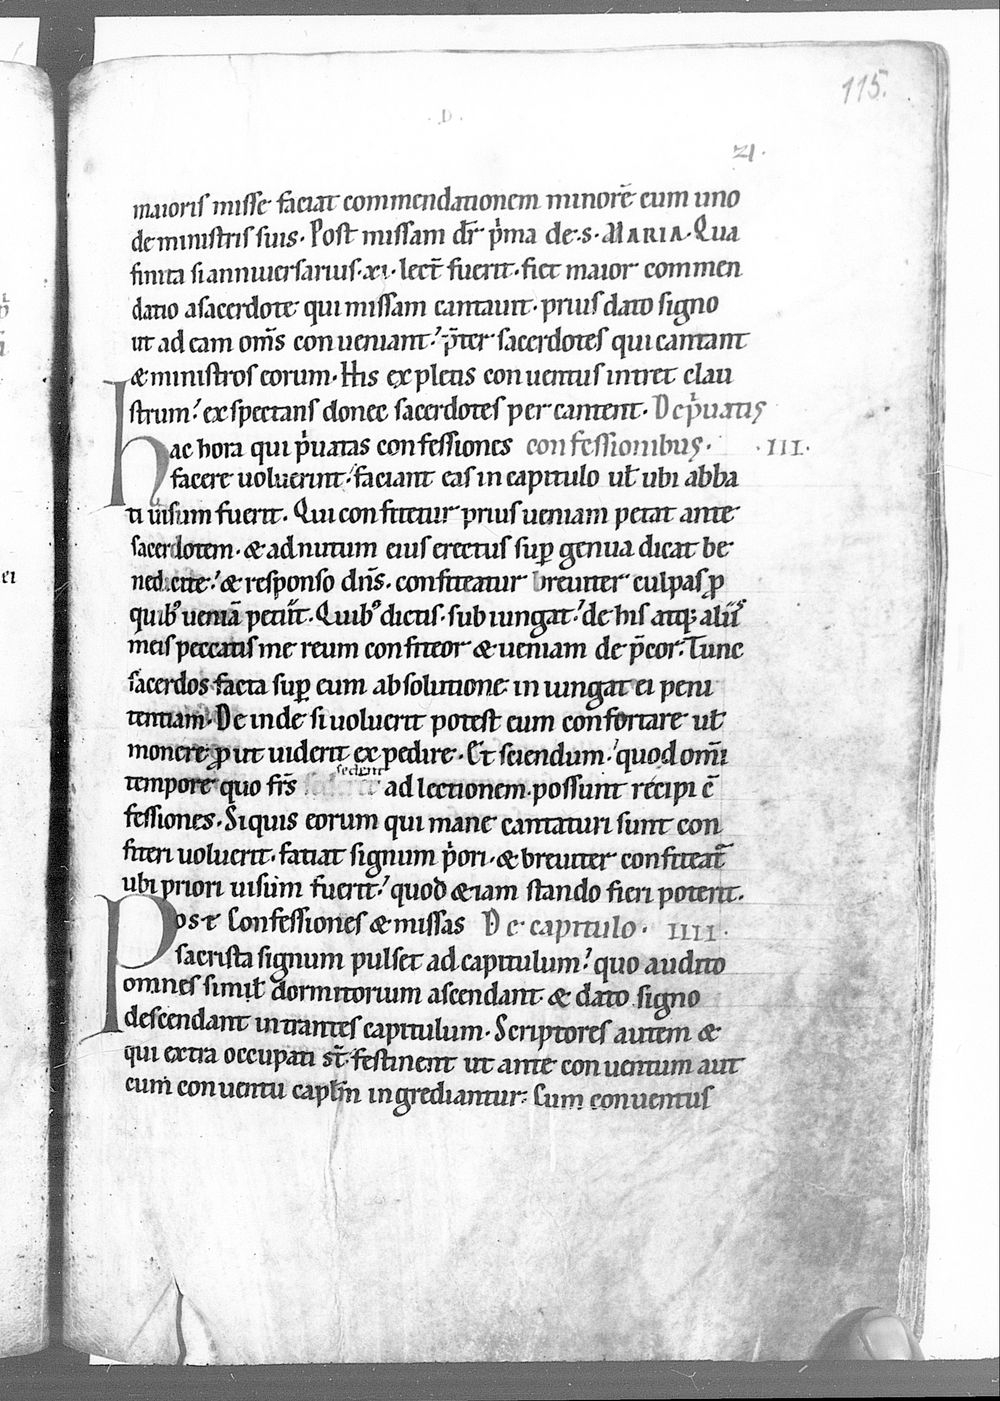 115.
.D.
21.
maioris misse faciat commendationem minorē cum uno
de ministris suis. Post missam dr̄ p̍ma de .s. MARIA. Qua
finita si anniuersarius .xi. lect̄ fuerit. fiet maior commen
datio a sacerdote qui missam cantauit. prius dato signo
ut ad eam om̄s conueniant: p̄ter sacerdotes qui cantant
& ministros eorum. His expletis conuentus intret clau
strum: expectans donec sacerdotes percantent. De p̍uatis
hac hora qui p̍uatas confessiones confessionibus. .III.
facere uoluerint: faciant eas in capitulo uł ubi abba
ti uisum fuerit. Qui confitetur prius ueniam petat ante
sacerdotem. & ad nutum eius erectus suꝑ genua dicat be
nedicite: & responso dn̄s. confiteatur breuiter culpas ꝓ
quib; ueniā petiit. Quib; dictis. subiungat: de his atq; aliis
meis peccatis me reum confiteor & ueniam dep̄cor. Tunc
sacerdos facta suꝑ eum absolutione iniungat ei peni
tentiam. Deinde si uoluerit potest eum confortare uł
monere ꝓut uiderit expedire. Et sciendum: quod omi̅
tempore quo fr̄s sedent ad lectionem. possunt recipi c̄
fessiones. Si quis eorum qui mane cantaturi sunt con
fiteri uoluerit. fatiat signum p̍ori. & breuiter confiteat̄
ubi priori uisum fuerit: quod & iam stando fieri poterit.
Post Confessiones & missas De capitulo. IIII.
sacrista signum pulset ad capitulum: quo audito
omnes simuł dormitorium ascendant & dato signo
descendant intrantes capitulum. Scriptores autem &
qui extra occupati st̄. festinent ut ante conuentum aut
cum conuentu capłm ingrediantur: Cum conuentus